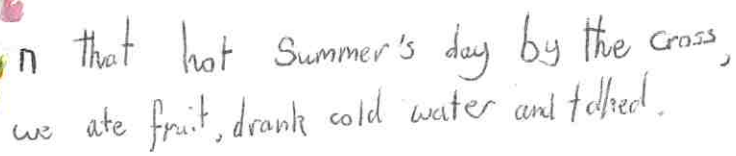 n that hot Summer's day by the cross,
we ate fruit, drank cold water and talked.